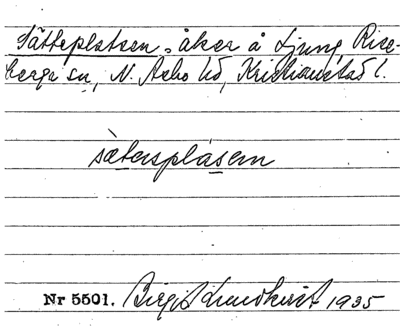 Sätteplatsen, åker å Ljung, Rise-
berga sn, N. Åsbo hd, Kristianstad l.
sätersplásem
Nr 5501. Birgit Lundkvist 1935